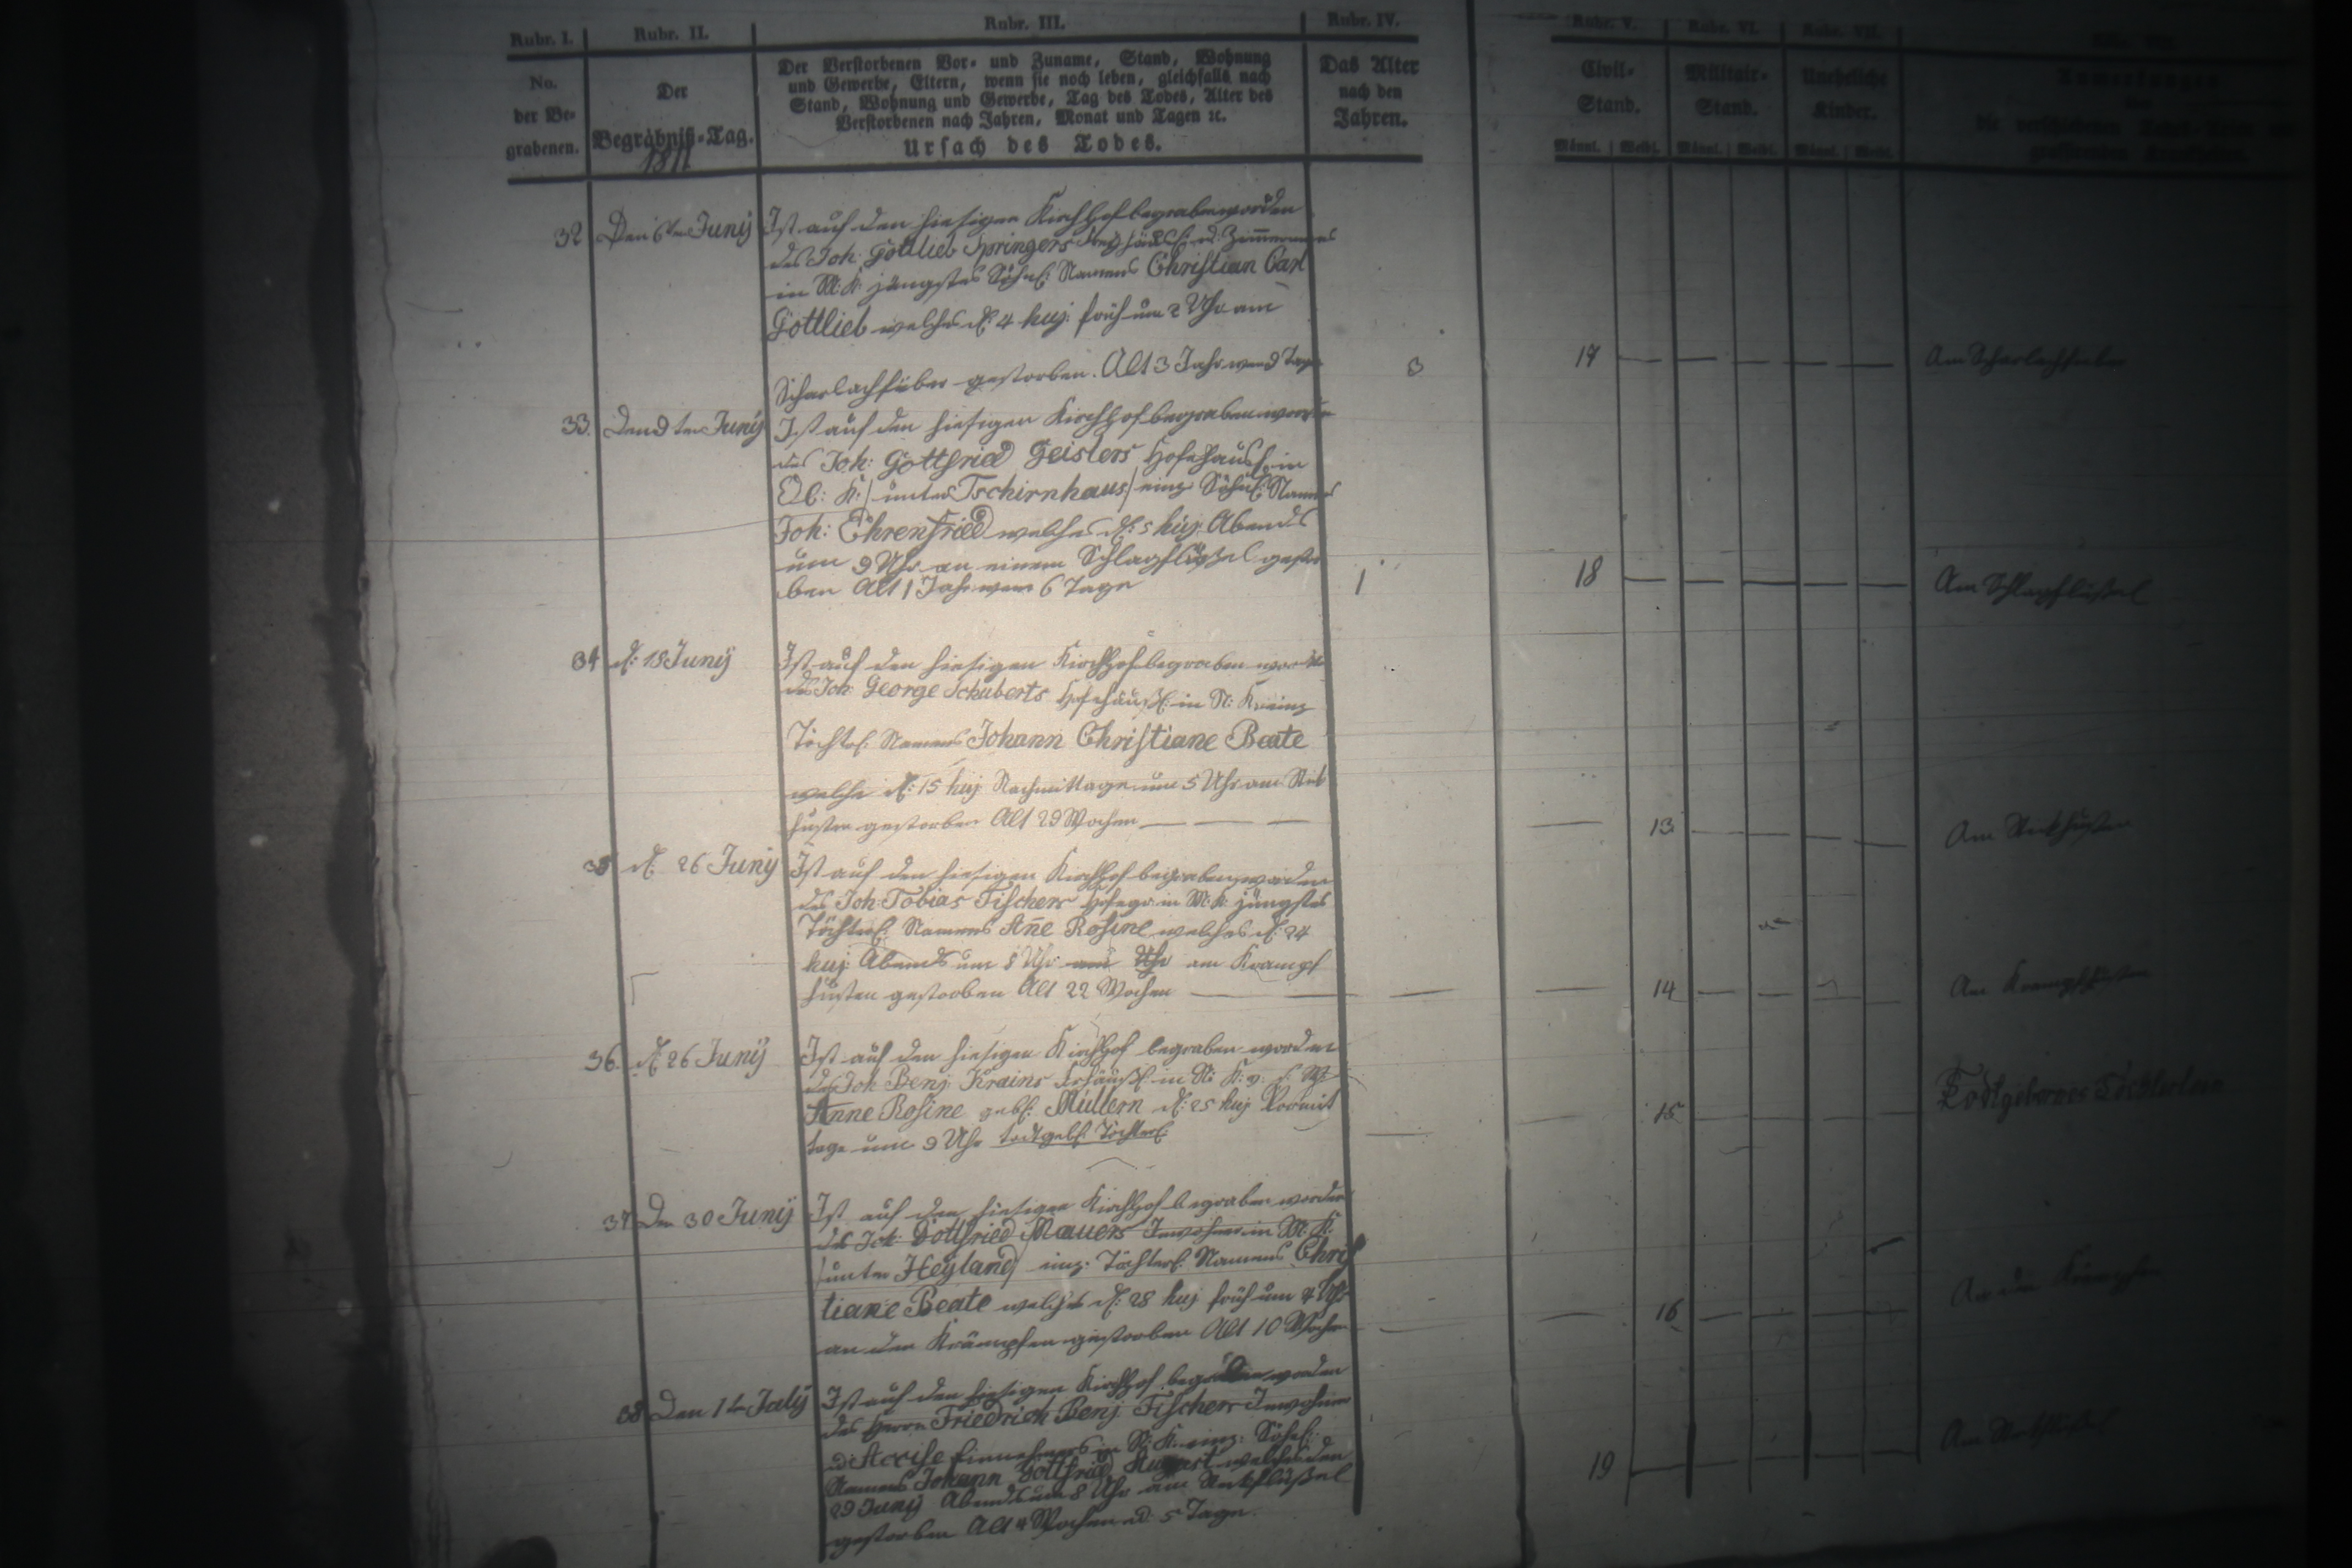 Rubr. I.
Rubr. II.
Rubr. III.
Rubr. IV.
Rubr. V.
Rubr. VI.
Rubr. VII.
No.
der Be-
grabenen.
Der
Begräbniß-Tag.
1811
Der Verstorbenen Vor- und Zuname, Stand, Wohnung
und Gewerbe, Eltern, wenn sie noch leben, gleichfalls nach
Stand, Wohnung und Gewerbe, Tag des Todes, Alter des
Verstorbenen nach Jahren, Monat und Tagen ꝛc.
Ursach des Todes.
Das Alter
nach den
Jahren.
Civil-
Stand.
Militair-
Stand.
Uneheliche
Kinder.
Anmerkungen
Männl. Weibl. Männl. Weibl. Männl. Weibl.
32 Den 6ten Junij Ist auf den hiesigen Kirchhof begraben worden
des Joh: Gottlieb Springers Zimmermanns
in M: K: jüngstes Söhnl: Namens Christian Carl
Gottlieb welches d: 4 huj: früh um 2 Uhr am
Scharlachfieber gestorben. Alt 3 Jahr wen 9 Tage 3 17 Am Scharlachfieber
33. Den 9ten Junij Ist auf den hiesigen Kirchhof begraben worden
des Joh: Gottfried Geislers Hofehäusl: in
Ob: K: / unter Tschirnhaus / einz: Söhnl: Namens
Joh: Ehrenfried welches d: 5 huj: Abends
um 9 Uhr an einem Schlagflüßel gestor
ben Alt 1 Jahr wen 6 Tage 1 18 Am Schlagflüßel
34 d: 18 Junij Ist auf den hiesigen Kirchhof begraben worden
des Joh: George Schuberts Hofehäusl: in N: K: einz
Töchterl: Namens Johann Christiane Beate
welche d: 15 huj Nachmittage um 5 Uhr am Stick
husten gestorben Alt 29 Wochen 13 Am Stickhusten
35 d: 26 Junij Ist auf den hiesigen Kirchhof begraben worden
des Joh: Tobias Fischers in M: K: jüngstes
Töchterl: Namens Añe Rosine welches d: 24
huj: Abends um 8 Uhr am Uhr am Krampf
husten gestorben Alt 22 Wochen 14 Am Krampfhusten
36. d: 26 Junij Ist auf den hiesigen Kirchhof begraben worden
des Joh: Benj: Krains in N: K:
Anne Rosine gebl: Müllern d: 25 huj Vormit
tage um 9 Uhr todtgeb: Töchterl: 15 Todtgebornes Töchterlein
37 Den 30 Junij Ist auf den hiesigen Kirchhof begraben worden
des Joh: Gottfried Mauers Inwohner in M: K:
/ unter Heyland / einz: Töchterl: Namens Chris
tiane Beate welches d: 28 huj früh um 4 Uhr
an den Krämpfen gestorben Alt 10 Wochen 16 An den Krämpfen
38 Den 1ten July Ist auf den hiesigen Kirchhof begraben worden
des Herrn Friedrich Benj: Fischers Inwohner
u: Accise Einnehmers in N: K: einz: Söhnl:
Namens Johann Gottfried August welches den
29 Junij Abends um 8 Uhr am Stickflüßel
gestorben Alt 4 Wochen u: 5 Tage 19 Am Stickflüßel